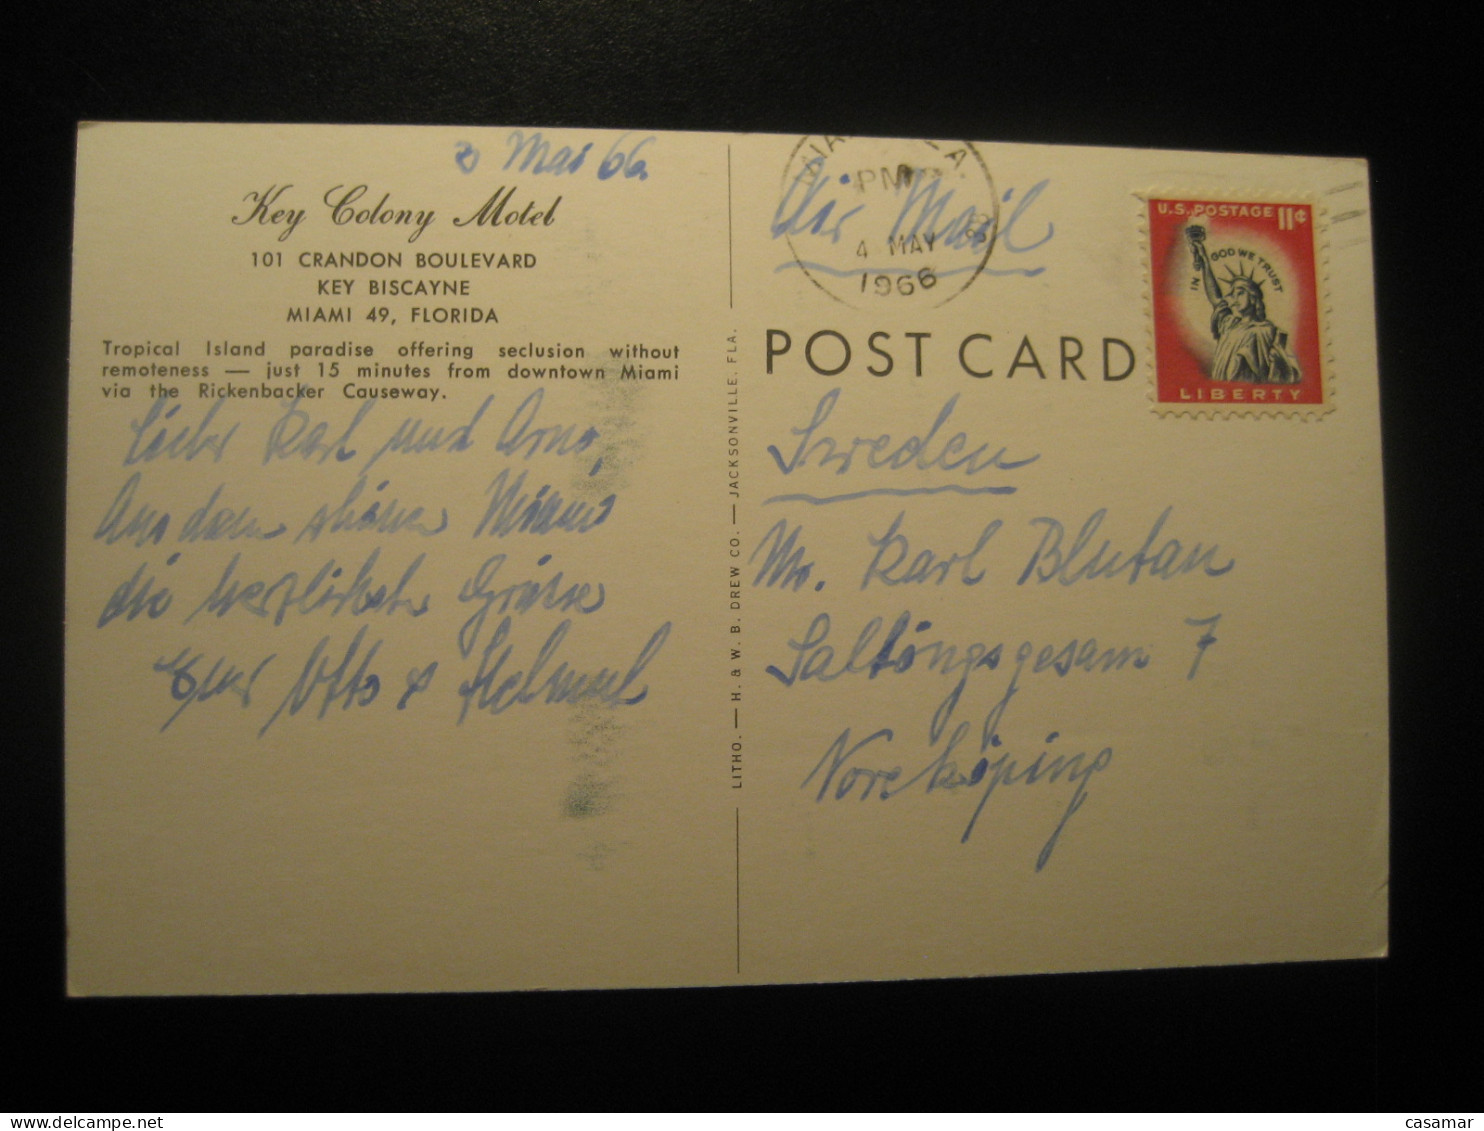 3 Mai 66.
Key Colony Motel
101 CRANDON BOULEVARD
KEY BISCAYNE
MIAMI 49, FLORIDA
Tropical Island paradise offering seclusion without
remoteness — just 15 minutes from downtown Miami
via the Rickenbacker Causeway.
Lieber Karl und Arno,
Aus dem schönen Miami
die herzlichsten Grüsse
Euer Otto & Helmut
LITHO. — H. & W. B. DREW CO. — JACKSONVILLE, FLA.
Air Mail
PM
4 MAY
1966
U.S. POSTAGE 11¢
IN GOD WE TRUST
LIBERTY
POST CARD
Sweden
Mr. Karl Blutan
Saltängsgesam 7
Norrköping
casamar